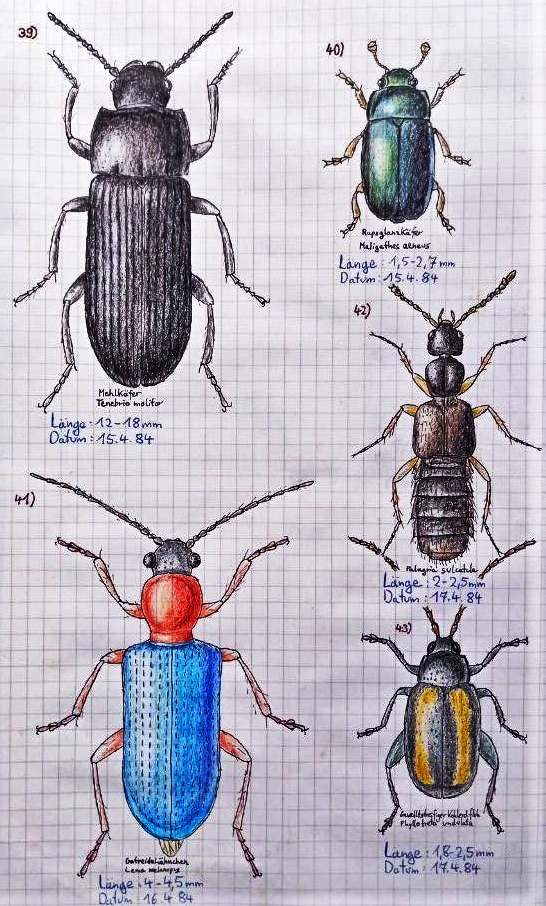 39)
Mehlkäfer
Tenebrio molitor
Länge: 12-18mm
Datum: 15.4.84
40)
Rapsglanzkäfer
Meligethes aeneus
Länge: 1,5-2,7mm
Datum: 15.4.84
41)
Getreidehähnchen
Lema melanopus
Länge: 4-4,5mm
Datum: 16.4.84
42)
sulcatula
Länge: 2-2,5mm
Datum: 17.4.84
43)
Gewelltstreifiger Kohlerdfloh
Phyllotreta undulata
Länge: 1,8-2,5mm
Datum: 17.4.84